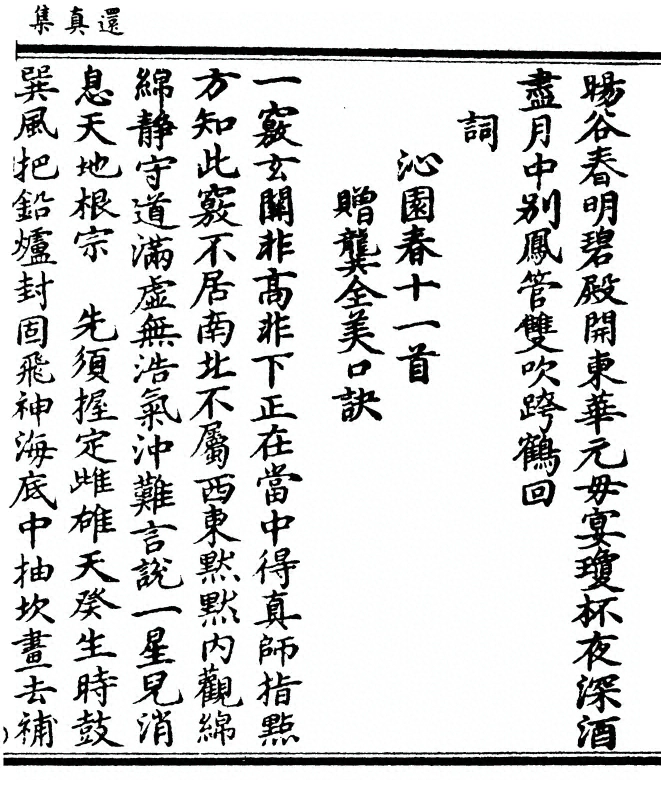 還真集
暘谷春明碧殿開東華元母宴瓊杯夜深酒
盡月中別鳳管雙吹跨鶴回
詞
沁園春十一首
贈龔全美口訣
一竅玄關非高非下正在當中得真師指點
方知此竅不居南北不屬西東默默內觀綿
綿靜守道滿虛無浩氣沖難言說一星兒消
息天地根宗　先須握定雌雄天癸生時鼓
巽風把鉛爐封固飛神海底中抽坎畫去補